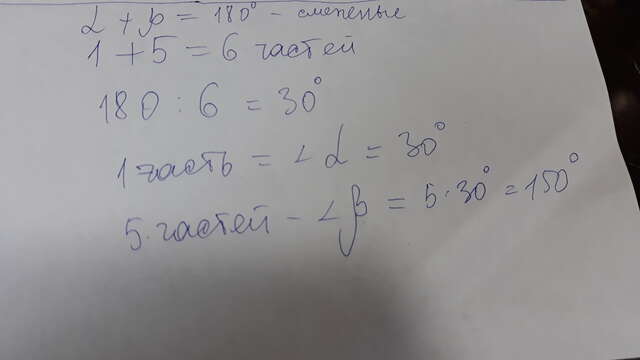 α + β = 180° - смежные
1 + 5 = 6 частей
180 : 6 = 30°
1 часть = ∠α = 30°
5 частей - ∠β = 5·30° = 150°